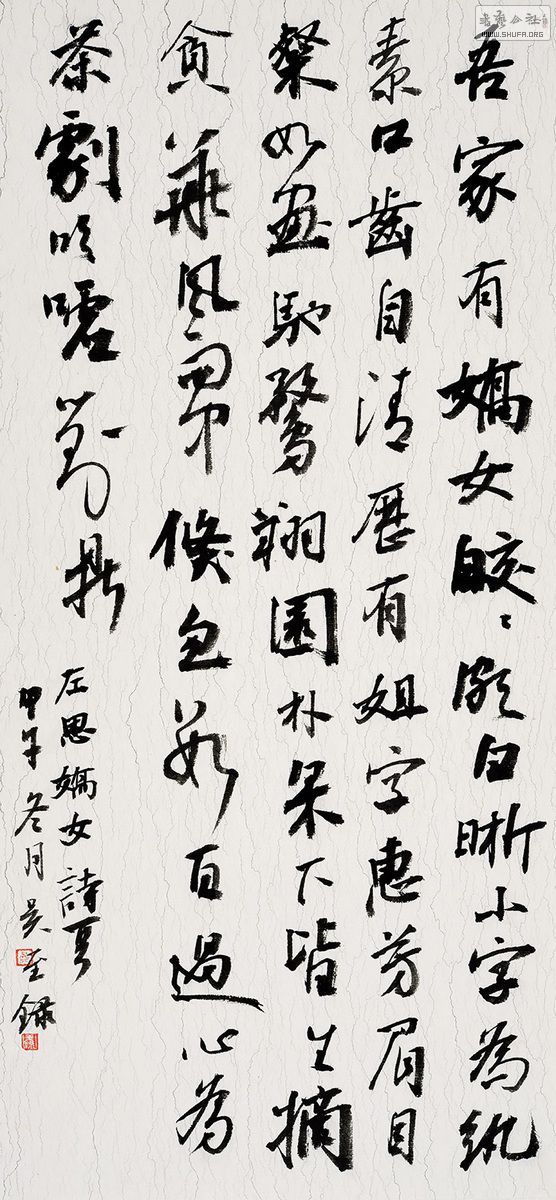 吾家有嬌女皎々頗白晰小字為紈
素口齒自清歷有姐字惠芳眉目
粲如畫馳騖翔園朴菓下皆生摘
貪華風雨中倏忽數百過心為
茶劇吹噓對鼎
左思嬌女詩頁
甲午冬月吳奎錄
WWW.SHUFA.ORG